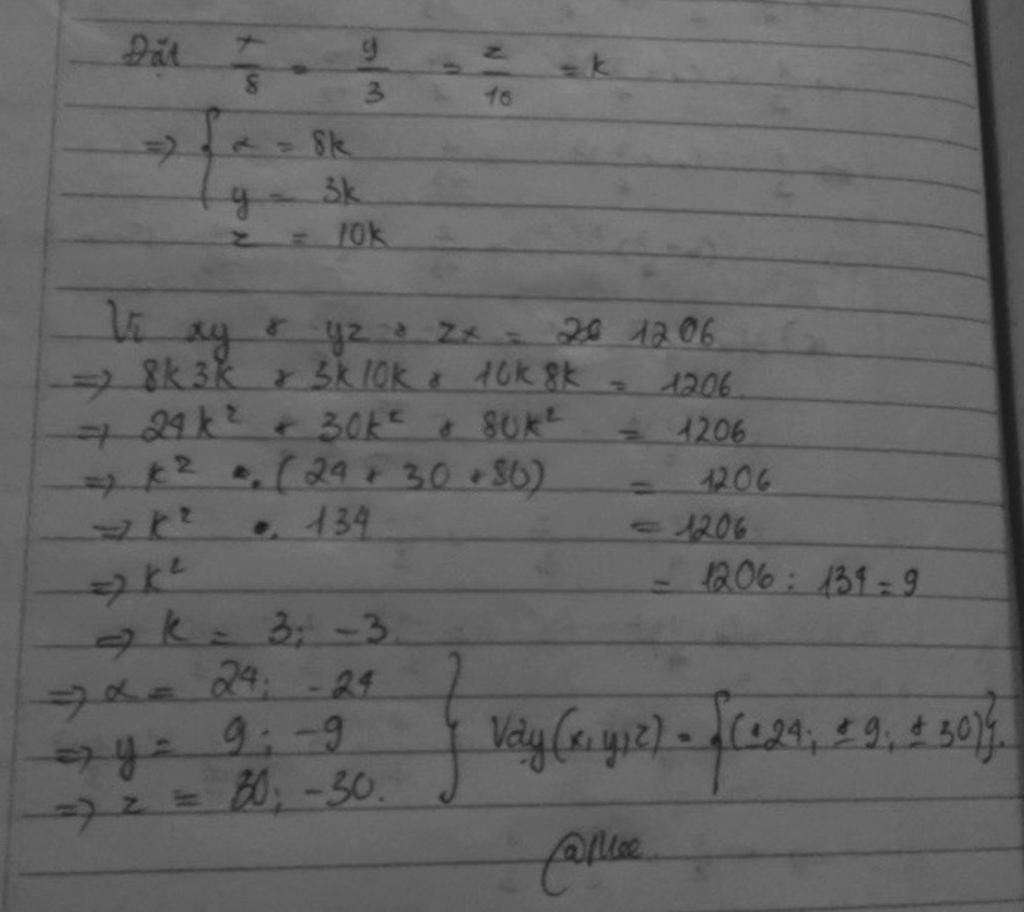 Đặt x/8 = y/3 = z/10 = k
=> { x = 8k
y = 3k
z = 10k
Vì xy + yz + zx = 1206
=> 8k3k + 3k10k + 10k8k = 1206
=> 24k² + 30k² + 80k² = 1206
=> k² . (24 + 30 + 80) = 1206
=> k² . 134 = 1206
=> k² = 1206 : 134 = 9
=> k = 3; -3
=> x = 24; -24
=> y = 9; -9 } Vậy (x, y, z) = {(±24; ±9; ±30)}.
=> z = 30; -30.
@Mee